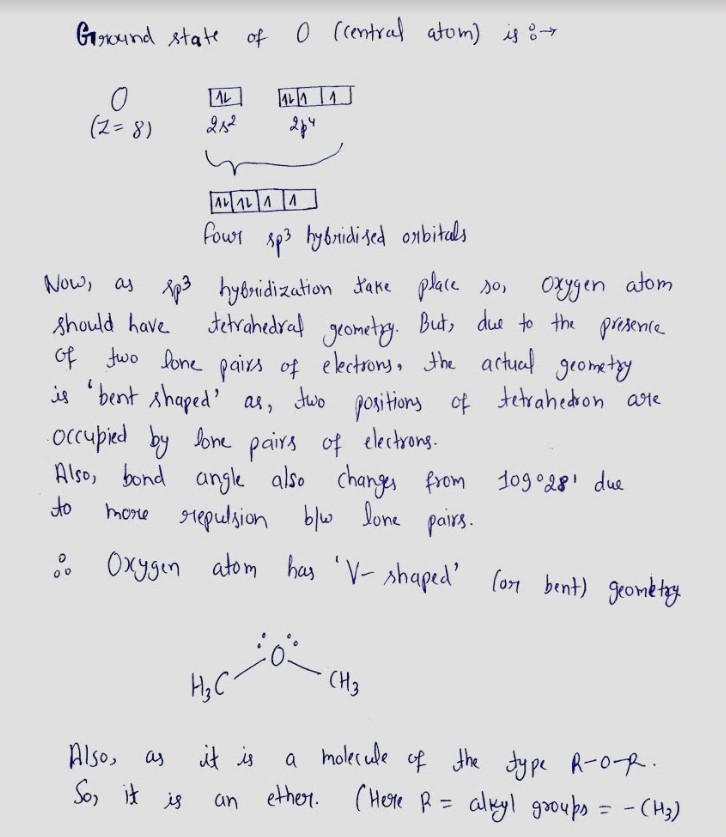 Ground state of O (central atom) is :→
O
(Z = 8)
1L
1L 1 1
2s²
2p⁴
1L 1L 1 1
four sp3 hybridised orbitals
Now, as sp3 hybridization take place so, Oxygen atom
should have tetrahedral geometry. But, due to the presence
of two lone pairs of electrons, the actual geometry
is 'bent shaped' as, two positions of tetrahedron are
occupied by lone pairs of electrons.
Also, bond angle also changes from 109°28' due
to more repulsion b/w lone pairs.
∴ Oxygen atom has 'V-shaped' (or bent) geometry
:O:
H3C CH3
Also, as it is a molecule of the type R-O-R.
So, it is an ether. (Here R = alkyl groups = -CH3)